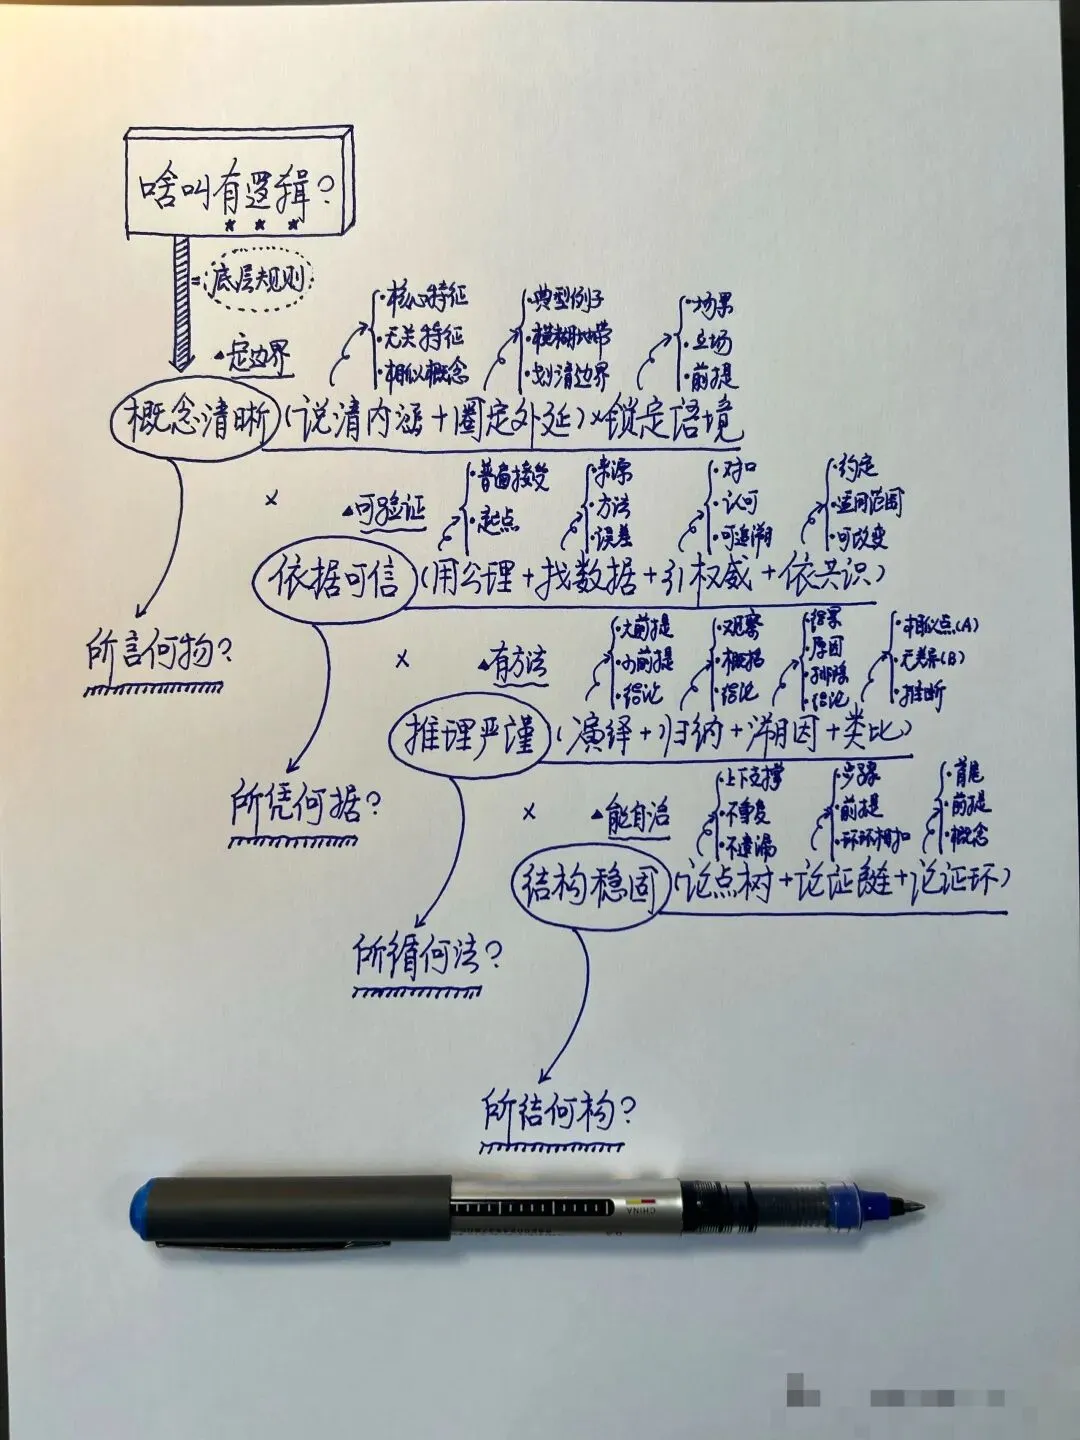 啥叫有逻辑?
=底层规则
▲定边界
·核心特征
·无关特征
·相似概念
·典型例子
·模糊地带
·划清边界
·场景
·立场
·前提
概念清晰(说清内涵+圈定外延)×锁定语境
所言何物?
×
▲可验证
·普遍接受
·起点
·来源
·方法
·误差
·对口
·认可
·可追溯
·约定
·适用范围
·可改变
依据可信(用公理+找数据+引权威+依共识)
所凭何据?
×
▲有方法
·大前提
·小前提
·结论
·观察
·概括
·结论
·结果
·原因
·排除
·结论
·相似点(A)
·无差异(B)
·推断
推理严谨(演绎+归纳+溯因+类比)
所循何法?
×
▲能自洽
·上下支撑
·不重复
·不遗漏
·步骤
·前提
·环环相扣
·首尾
·前提
·概念
结构稳固(论点树+论证链+论证环)
所结何构?
CHINA